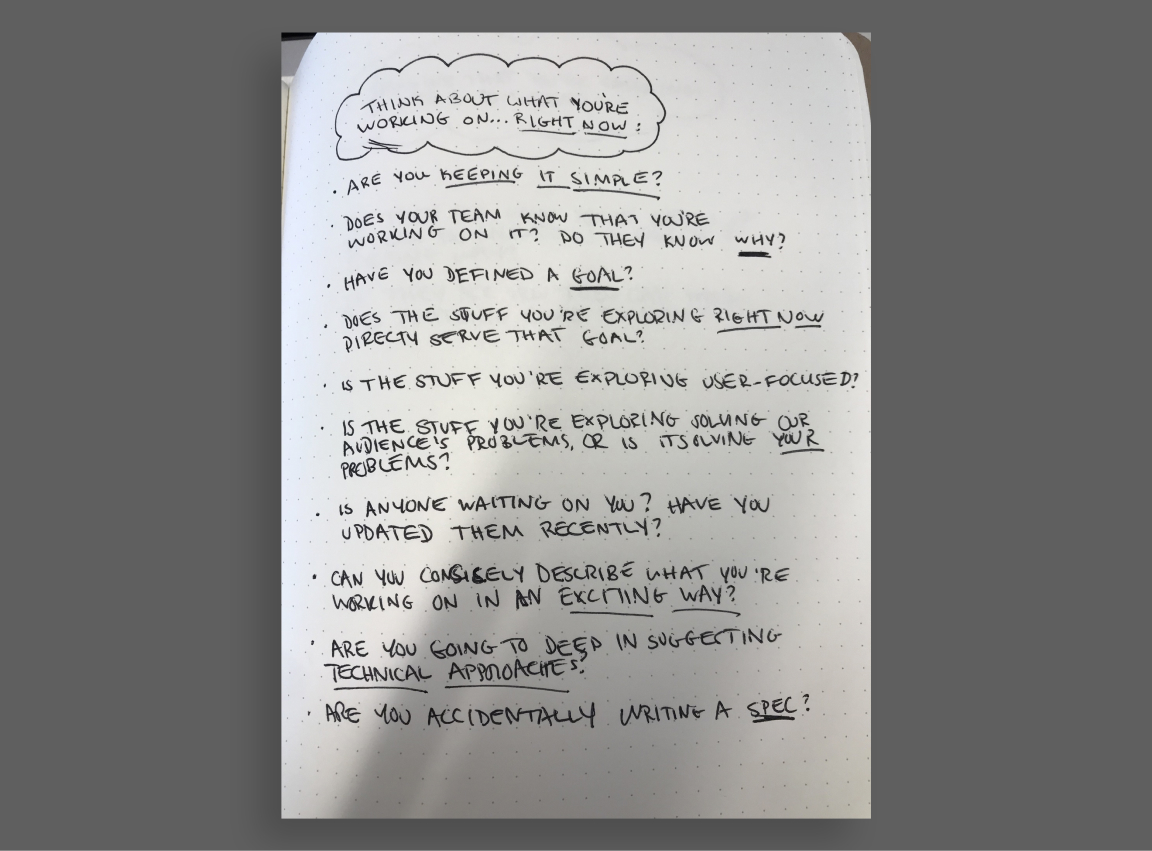 THINK ABOUT WHAT YOU'RE
WORKING ON... RIGHT NOW:
· ARE YOU KEEPING IT SIMPLE?
· DOES YOUR TEAM KNOW THAT YOU'RE
WORKING ON IT? DO THEY KNOW WHY?
· HAVE YOU DEFINED A GOAL?
· DOES THE STUFF YOU'RE EXPLORING RIGHT NOW
DIRECTY SERVE THAT GOAL?
· IS THE STUFF YOU'RE EXPLORING USER-FOCUSED?
· IS THE STUFF YOU'RE EXPLORING SOLVING OUR
AUDIENCE'S PROBLEMS, OR IS IT SOLVING YOUR
PROBLEMS?
· IS ANYONE WAITING ON YOU? HAVE YOU
UPDATED THEM RECENTLY?
· CAN YOU CONSISELY DESCRIBE WHAT YOU'RE
WORKING ON IN AN EXCITING WAY?
· ARE YOU GOING TO DEEP IN SUGGESTING
TECHNICAL APPROACHES?
· ARE YOU ACCIDENTALLY WRITING A SPEC?